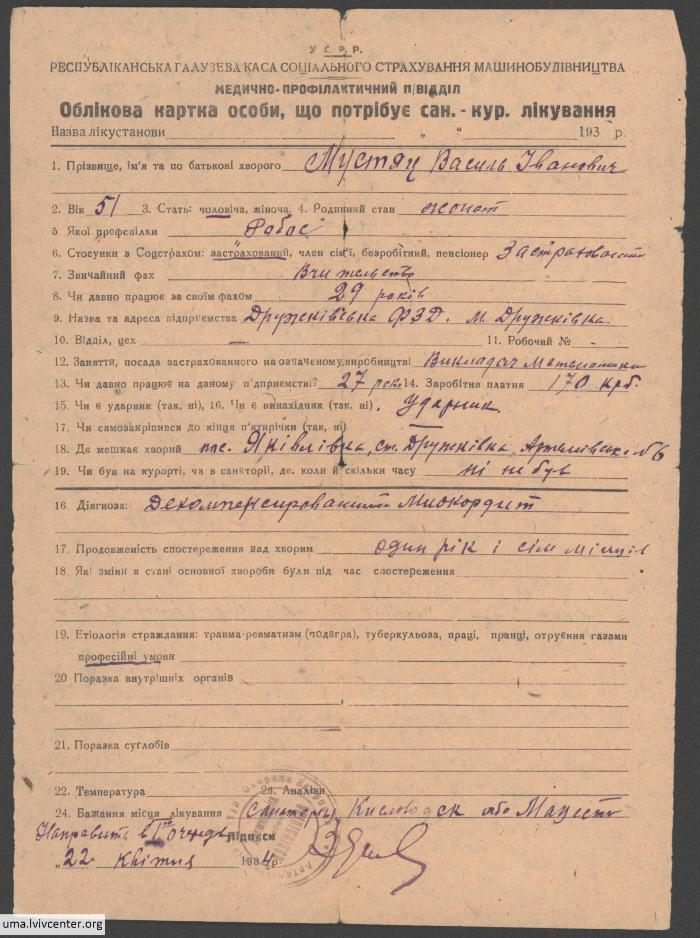 У.С.Р.Р.
РЕСПУБЛІКАНСЬКА ГАЛУЗЕВА КАСА СОЦІАЛЬНОГО СТРАХУВАННЯ МАШИНОБУДІВНИЦТВА
МЕДИЧНО-ПРОФІЛАКТИЧНИЙ П/ВІДДІЛ
Облікова картка особи, що потрібує сан.-кур. лікування
Назва лікустанови „ “ 193 р.
1. Прізвище, ім'я та по батькові хворого Мустяц Василь Іванович
2. Вік 51 3. Стать: чоловіча, жіноча. 4. Родинний стан жонат
5. Якої профспілки Робос
6. Стосунки з Соцстрахом: застрахований, член сім'ї, безробітний, пенсіонер Застрахований
7. Звичайний фах Вчительство
8. Чи давно працює за своїм фахом 29 років
9. Назва та адреса підприємства Дружківська ФЗД. м. Дружківка
10. Відділ, цех — 11. Робочий №
12. Заняття, посада застрахованного на означеному виробництві Викладач Математики
13. Чи давно працює на даному підприємстві? 27 рок. 14. Заробітня платня 170 крб.
15. Чи є ударник (так, ні), 16. Чи є винахідник (так, ні). Ударник.
17. Чи самозакріпився до кінця п'ятирічки (так, ні)
18. Де мешкає хворий пос. Яківлівка, ст. Дружківка, №6
19. Чи був на курорті, чи в санаторії, де, коли й скільки часу ні не був
16 Діягноза: Декомпенсированый Миокордит
17. Продовженість спостереження над хворим один рік і сім місяців
18. Які зміни в стані основної хвороби були під час спостереження
19. Етіологія страждання: травма-ревматизм (подагра), туберкульоза, праці, пранці, отруєння газами
професійні умови
20 Поразка внутрішніх органів
21. Поразка суглобів
22. Температура 23. Аналізи
24. Бажання місця лікування Кисловодск або Мацеста
Направить в I очередь Підписи
„22 Квітня 1934 р.
uma.lvivcenter.org